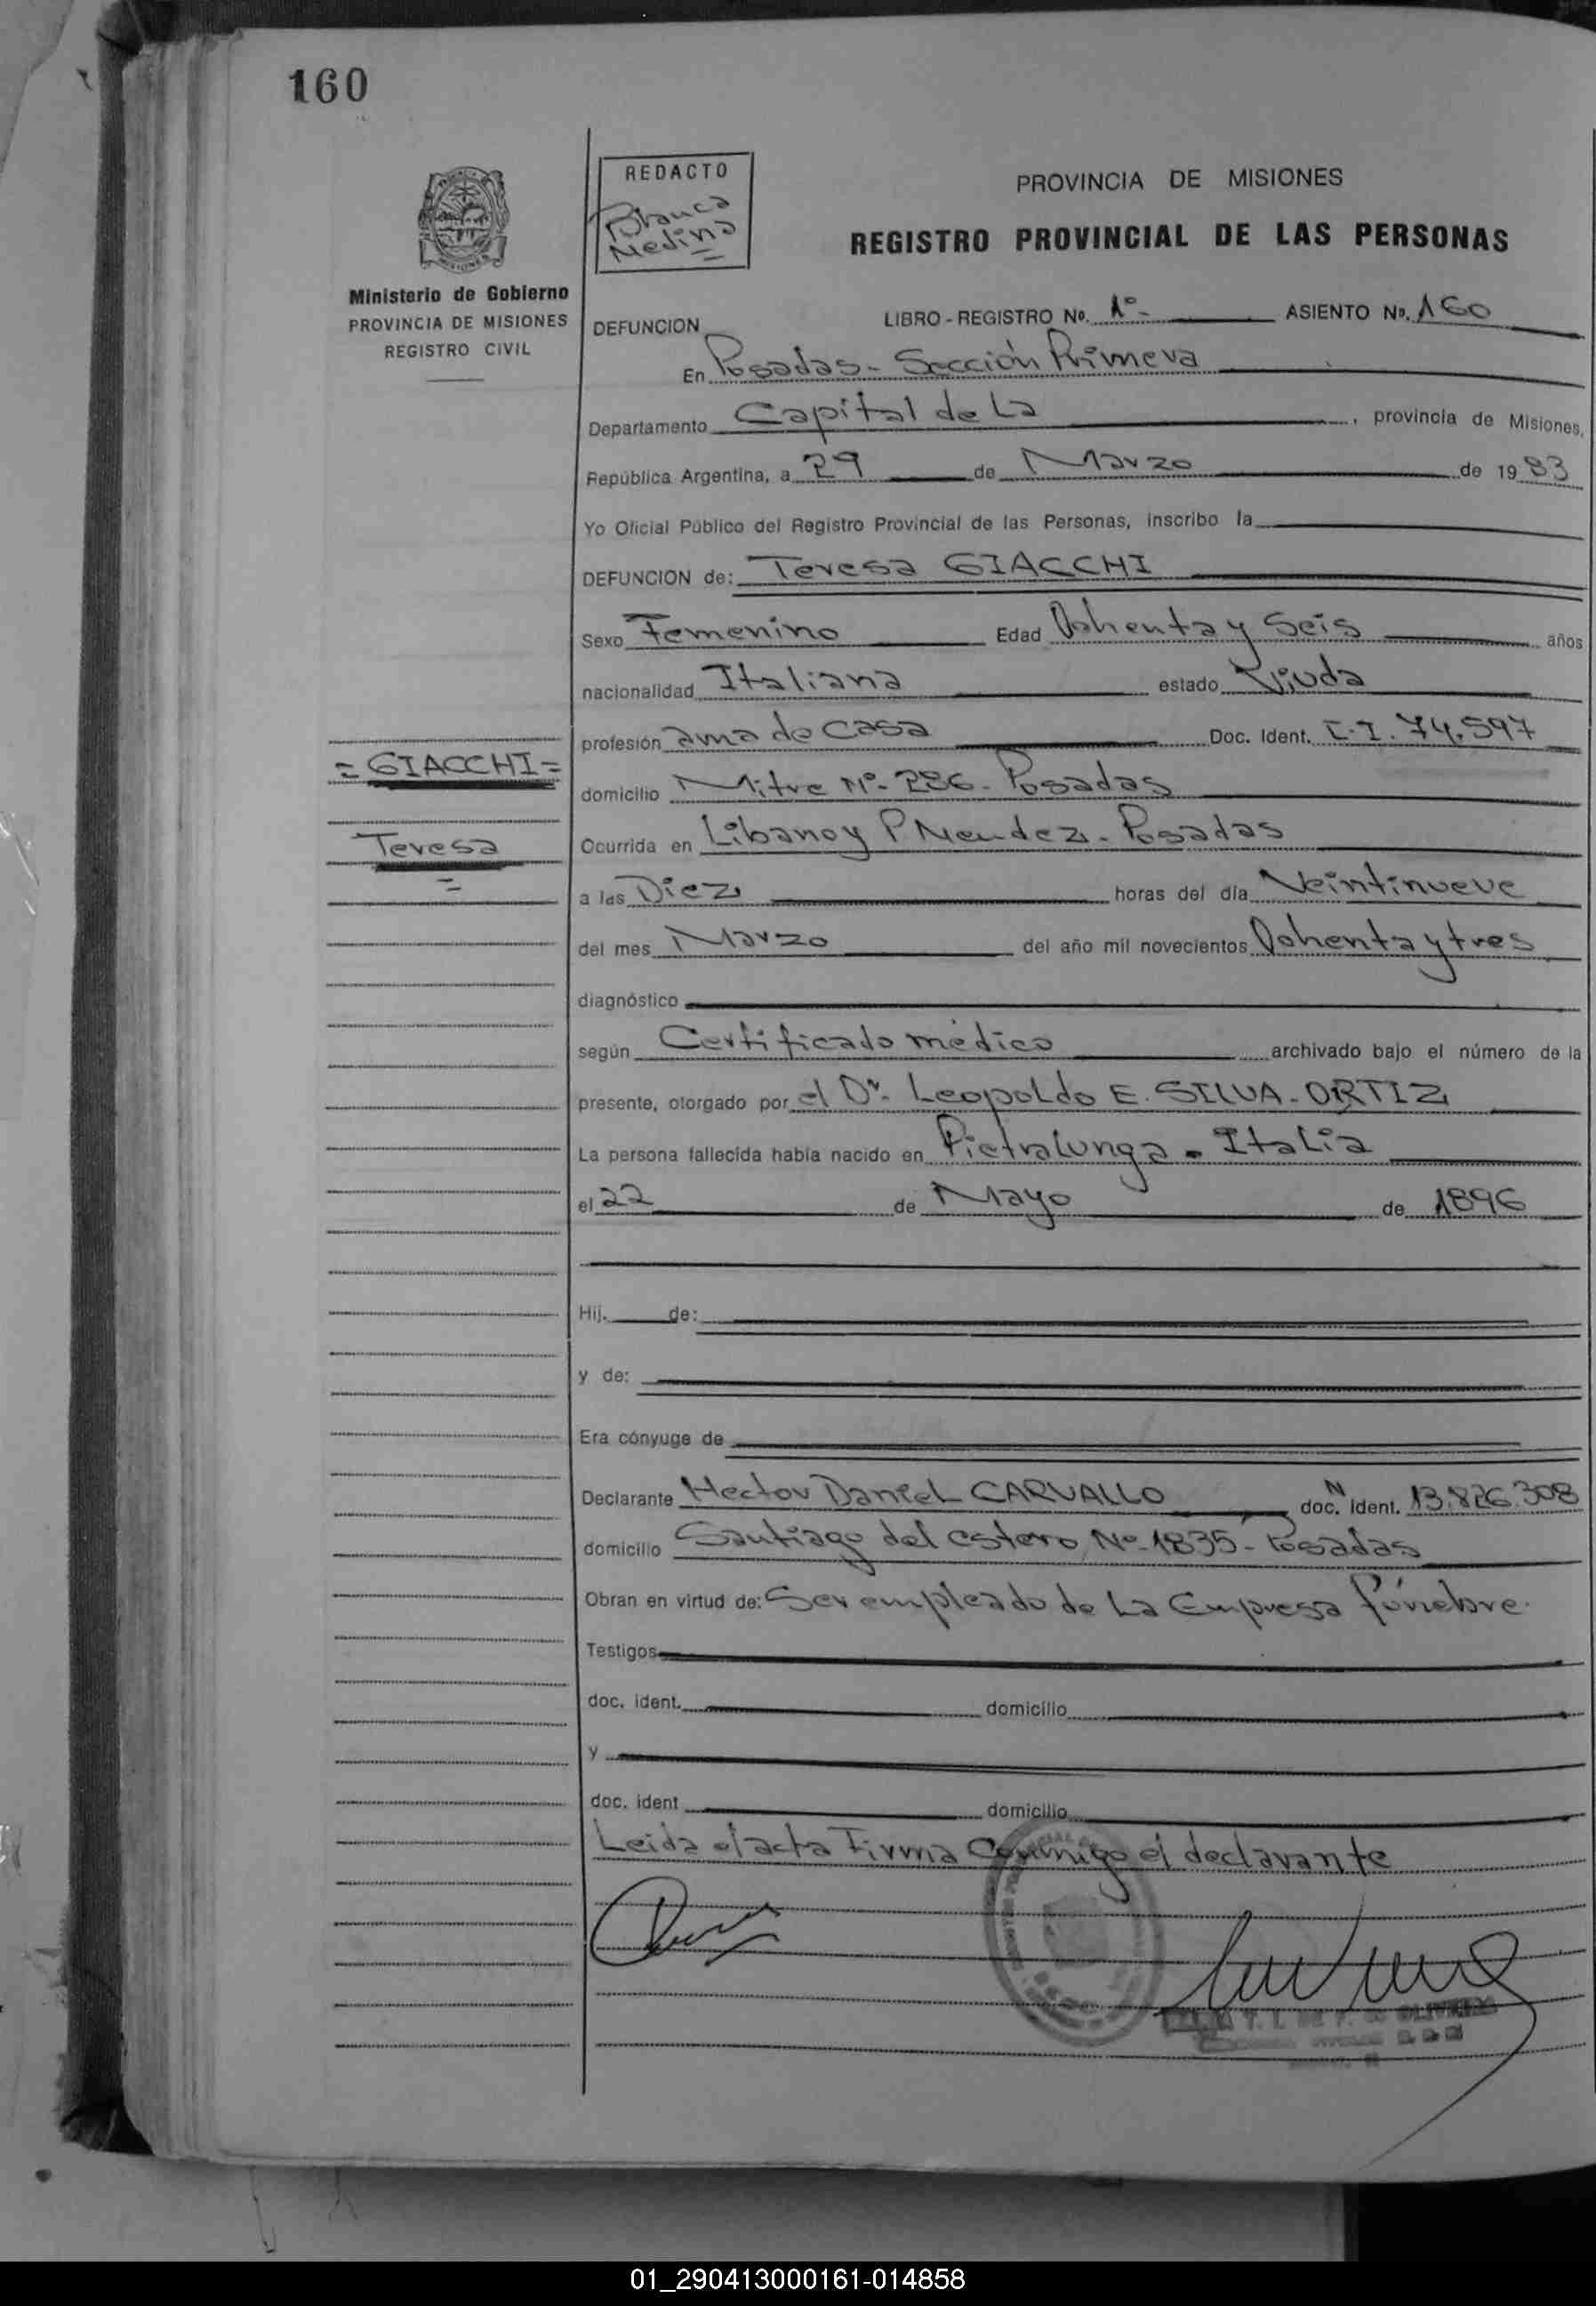 160
REDACTO
Blanca
Medina
PROVINCIA DE MISIONES
REGISTRO PROVINCIAL DE LAS PERSONAS
Ministerio de Gobierno
PROVINCIA DE MISIONES
REGISTRO CIVIL
DEFUNCION LIBRO - REGISTRO No. 1º - ASIENTO No. 160
En Posadas - Sección Primera
Departamento Capital de La , provincia de Misiones,
República Argentina, a 29 de Marzo de 1983
Yo Oficial Público del Registro Provincial de las Personas, inscribo la
DEFUNCION de: Teresa GIACCHI
Sexo Femenino Edad Ochenta y Seis años
nacionalidad Italiana estado Viuda
profesión ama de casa Doc. Ident. C.I. 74.597
= GIACCHI =
domicilio Mitre Nº - 286 - Posadas
Teresa
Ocurrida en Libano y P Mendez - Posadas
a las Diez horas del día Veintinueve
del mes Marzo del año mil novecientos Ochenta y tres
diagnóstico
según Certificado médico archivado bajo el número de la
presente, otorgado por el Dr. Leopoldo E. SILVA - ORTIZ
La persona fallecida había nacido en Pietralunga - Italia
el 22 de Mayo de 1896
Hij. de:
y de:
Era cónyuge de
Declarante Hector Daniel CARVALLO doc. N ident. 13.826.308
domicilio Santiago del estero Nº - 1835 - Posadas
Obran en virtud de: Ser empleado de La Empresa fúnebre.
Testigos
doc. ident. domicilio
y
doc. ident domicilio
Leida el acta Firma Conmigo el declarante
01_290413000161-014858